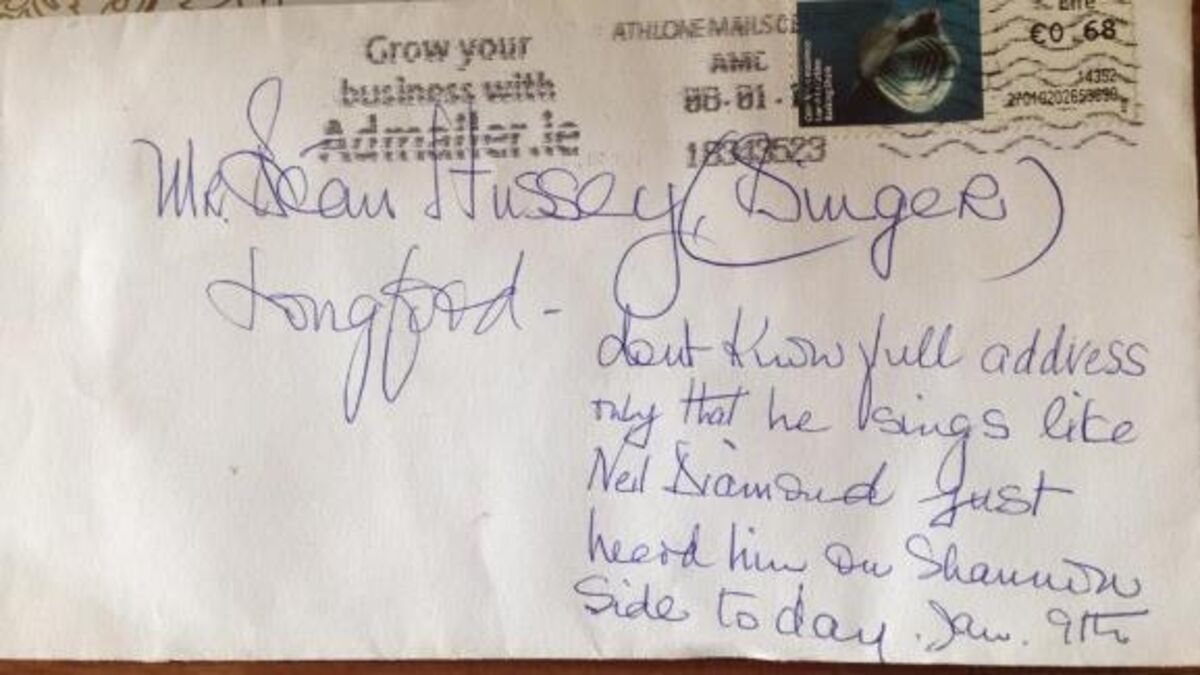 Grow your
business with
Admailer.ie
ATHLONE MAILS CE
AMC
18343523
Éire
€0.68
14352
Mr. Sean Hussey (Singer)
Longford -
dont Know full address
only that he sings like
Neil Diamond Just
heard him on Shannon
Side today. Jan. 9th